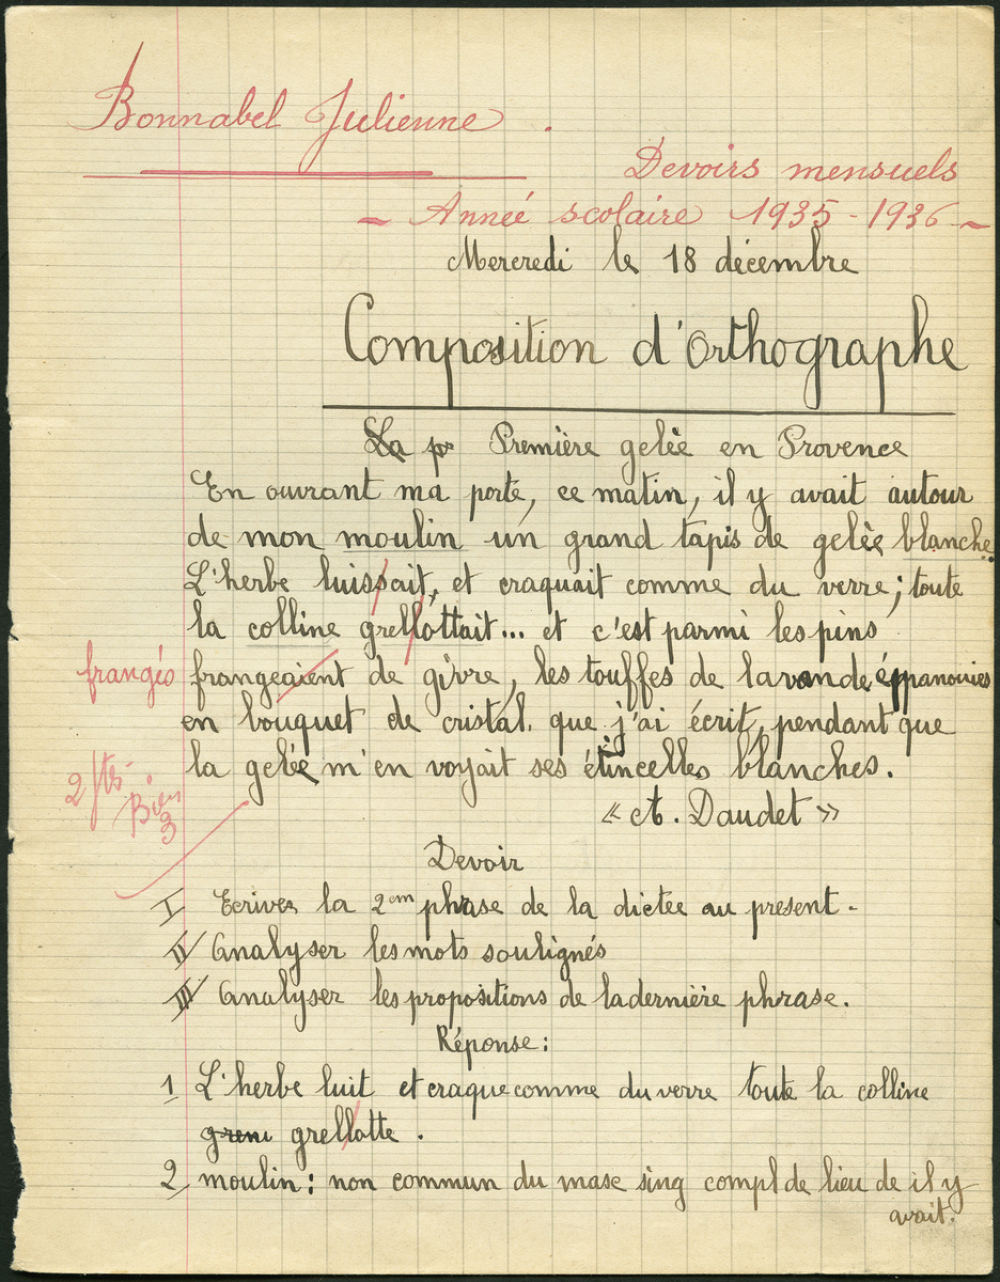 Bonnabel Julienne .
Devoirs mensuels
~ Anneé scolaire 1935-1936 ~
Mercredi le 18 décembre
Composition d'Orthographe
La pr Première gelée en Provence
En ouvrant ma porte, ce matin, il y avait autour
de mon moulin un grand tapis de gelée blanche.
L'herbe luissait, et craquait comme du verre; toute
la colline grellottait... et c'est parmi les pins
frangés frangeaient de givre, les touffes de lavande éppanouies
en bouquet de cristal. que j'ai écrit, pendant que
la gelée m'en voyait ses étincelles blanches.
2 fts
Bien
3
« A. Daudet »
Devoir
I Ecrivez la 2em phrase de la dictee au présent.
II Analyser les mots soulignés
III Analyser les propositions de la dernière phrase.
Réponse:
1 L'herbe luit et craque comme du verre toute la colline
grellotte .
2 moulin: non commun du masc sing compl de lieu de il y
avait.